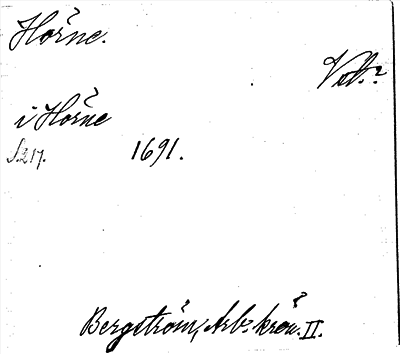 Horne.
Vb.?
i Horne
S. 217.
1691.
Bergström, Arb. krön. II.